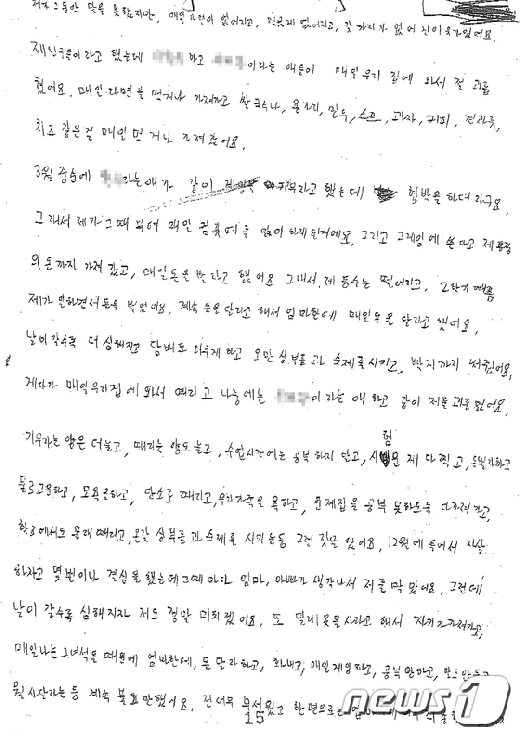 제가 그동안 말을 못했지만, 매일 라면이 없어지고, 먹을게 없어지고, 갖가지가 없어진 이유가 있어요.
제 친구들이라고 했는데 하고 이라는 애들이 매일 우리 집에 와서 절 괴롭
혔어요. 매일 라면을 먹거나 가져가고 쌀국수나, 용가리, 만두, 스프, 과자, 커피, 견과류,
치즈 같은걸 매일 먹거나 가져갔어요.
3월 중순에 라는 애가 같이 게임을 키우라고 했는데 협박을 하더라구요.
그래서 제가 그때부터 매일 컴퓨터를 많이 하게 된거에요. 그리고 그 게임에 쓴다고 제 통장
의 돈까지 가져갔고, 매일 돈을 달라고 했어요. 그래서 제 등수는 떨어지고, 2학기 때쯤
제가 일하면서 돈을 벌었어요. 계속 돈을 달라고 해서 엄마한테 매일 돈을 달라고 했어요.
날이 갈수록 더 심해지고 담배도 피우게 하고 오만 심부름과 숙제를 시키고, 빡지까지 써줬어요.
게다가 매일 우리집에 와서 때리고 나중에는 이라는 애하고 같이 저를 괴롭혔어요.
키우라는 양은 더 늘고, 때리는 양도 늘고, 수업시간에는 공부하지 말고, 시험문제 다 찍고, 돈벌라 하고
물로 고문하고, 모욕을 하고, 단소로 때리고, 우리가족을 욕하고, 문제집을 공부 못하도록 다 가져가고,
학교에서도 몰래 때리고, 온갖 심부름과 숙제를 시키는 등 그런 짓을 했어요. 12월에 들어서 자살
하자고 몇번이나 결심을 했는데 그때마다 엄마, 아빠가 생각나서 저를 막았어요. 그런데
날이 갈수록 심해지자 저도 정말 미치겠어요. 또 밀레 옷을 사라고 해서 자기가 가져가고,
매일 나는 그 녀석들 때문에 엄마한테 돈 달라 하고, 화내고, 매일 게임하고, 공부 안하고, 말도 안듣고
뭘 사달라는 등 계속 불효만 했어요. 전 너무 무서웠고 한편으로는 엄마에게
15
news1